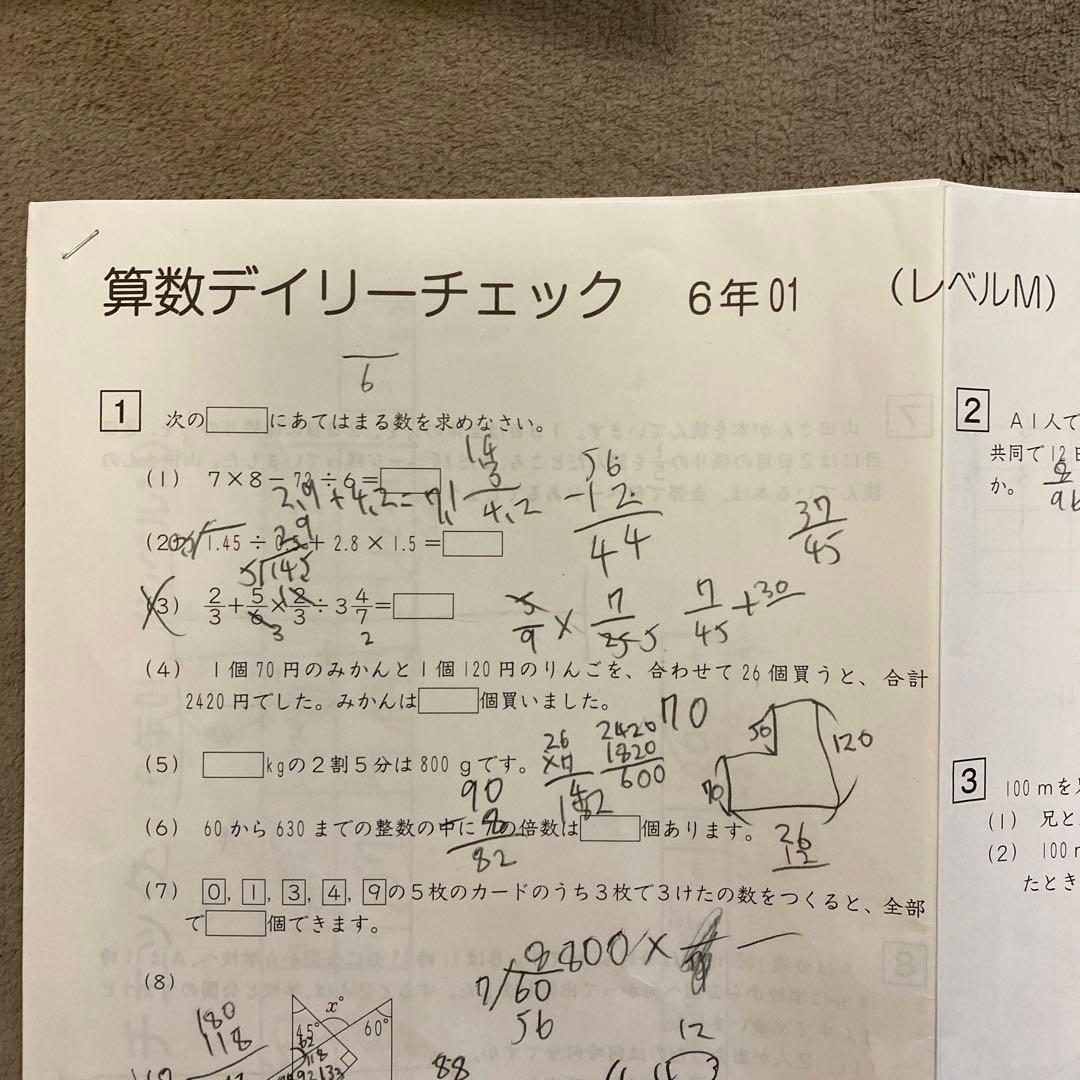 算数デイリーチェック 6年01 (レベルM)
6
1 次の□にあてはまる数を求めなさい。
(1) 7×8−72÷6=□
2.9+4.2=7.1
4.2
56
−12
44
37/45
(2) 1.45÷0.5+2.8×1.5=□
29
5)145
(3) 2/3+5/6×2/3÷3 4/7=□
5/9 × 7/25 5
7/45 + 30
(4) 1個70円のみかんと1個120円のりんごを、合わせて26個買うと、合計
2420円でした。みかんは□個買いました。
70
50
120
70
(5) □kgの2割5分は800gです。
26
×7
2420
1820
600
90
8
82
(6) 60から630までの整数の中に7の倍数は□個あります。
26
12
(7) 0, 1, 3, 4, 9の5枚のカードのうち3枚で3けたの数をつくると、全部
で□個できます。
8800×
7)60
56
12
(8)
180
118
x°
45°
60°
88
2 A1人で
共同で12日
か。
3 100mを
(1) 兄と
(2) 100m
たとき